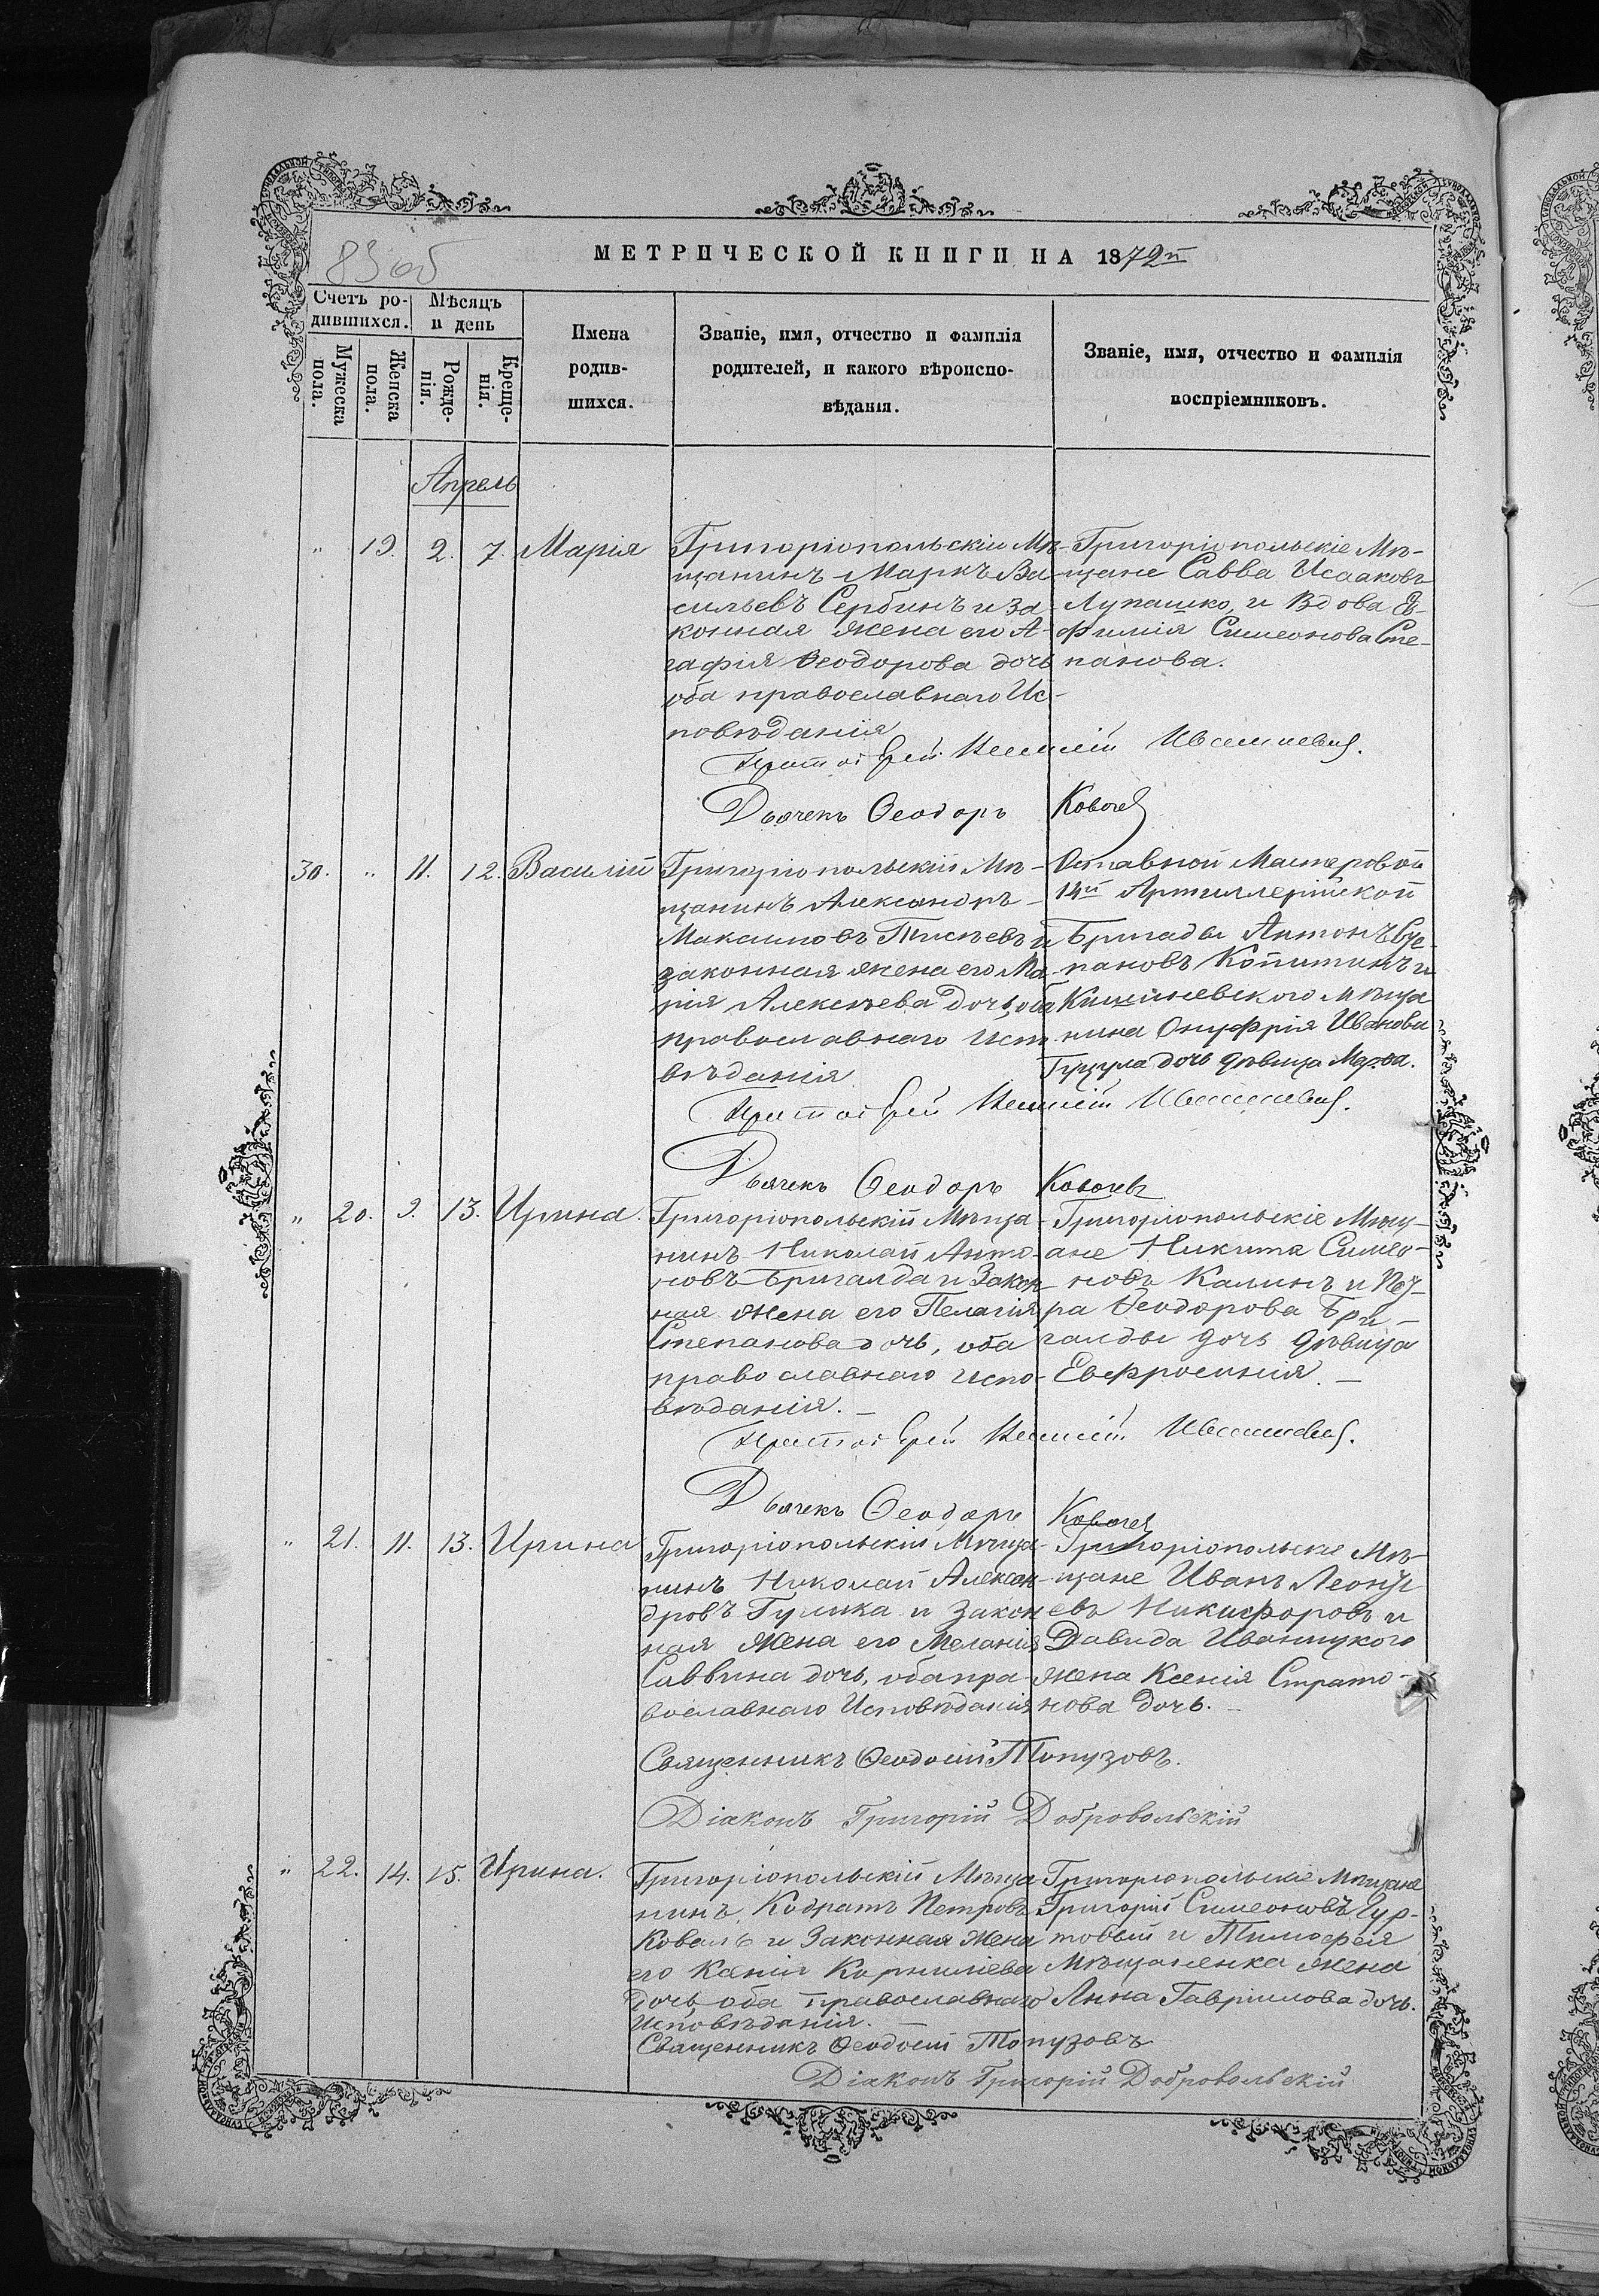 83 об
МЕТРИЧЕСКОЙ КНИГИ НА 1872й
Счетъ ро-
дившихся.
Мѣсяцъ
и день
Мужеска
пола.
Женска
пола.
Рожде-
нія.
Креще-
нія.
Имена
родив-
шихся.
Званіе, имя, отчество и фамилія
родителей, и какого вѣроиспо-
вѣданія.
Званіе, имя, отчество и фамилія
воспріемниковъ.
Апрель
" 19. 2. 7. Марія
Григоріопольскій Мѣ-
щанинъ Маркъ Ва-
сильевъ Сербинъ и за-
конная жена его А-
гафія Ѳеодорова дочь
оба православнаго Ис-
повѣданія
Григоріопольскіе Мѣ-
щане Савва Исааковъ
Лупашко, и Вдова Ев-
фимія Симеонова Сте-
панова.
Протоіерей
Дьячекъ Ѳеодоръ
30. " 11. 12. Василій
Григоріопольскій Мѣ-
щанинъ Александръ
Максимовъ и
законная жена его Ма-
рія Алексѣева дочь, оба
православнаго Испо-
вѣданія
Отставной Мастеровой
14й Артиллерійской
Бригады Антонъ Сте-
пановъ Копитинъ и
Кишиневского мѣща-
нина Онуфрія Иванова
дочь дѣвица
Протоіерей
Дьячекъ Ѳеодоръ
" 20. 9. 13. Ирина.
Григоріопольскій Мѣща-
нинъ Николай Анто-
новъ Бригалда и Закон-
ная жена его Пелагія
Степанова дочь, оба
православнаго испо-
вѣданія.
Григоріопольскіе Мѣщ-
ане Никита Симео-
новъ Калинъ и
Ѳеодорова Бри-
галды дочь дѣвица
Евфросинія.
Протоіерей
Дьячекъ Ѳеодоръ
" 21. 11. 13. Ирина
Григоріопольскій Мѣща-
нинъ Николай Алексан-
дровъ Гулика и Закон-
ная жена его Меланія
Саввина дочь, оба пра-
вославнаго Исповѣданія
Григоріопольскіе Мѣ-
щане Иванъ Леонтъ-
евъ Никифоровъ и
Давида Иваницкого
жена Ксенія Страто-
нова дочь.
Священникъ Ѳеодосій Топузовъ.
Діаконъ Григорій Добровольскій
" 22. 14. 15. Ирина.
Григоріопольскій Мѣща-
нинъ, Кодратъ Петровъ
Коваль и Законная жена
его Ксенія Корнилієва
дочь, оба православнаго
исповѣданія.
Григоріопольскіе Мѣщане
Григорій Симеоновъ Гур-
товый и Тимофея
Мѣщаненка жена
Анна Гавріилова дочь.
Священникъ Ѳеодосій Топузовъ
Діаконъ Григорій Добровольскій